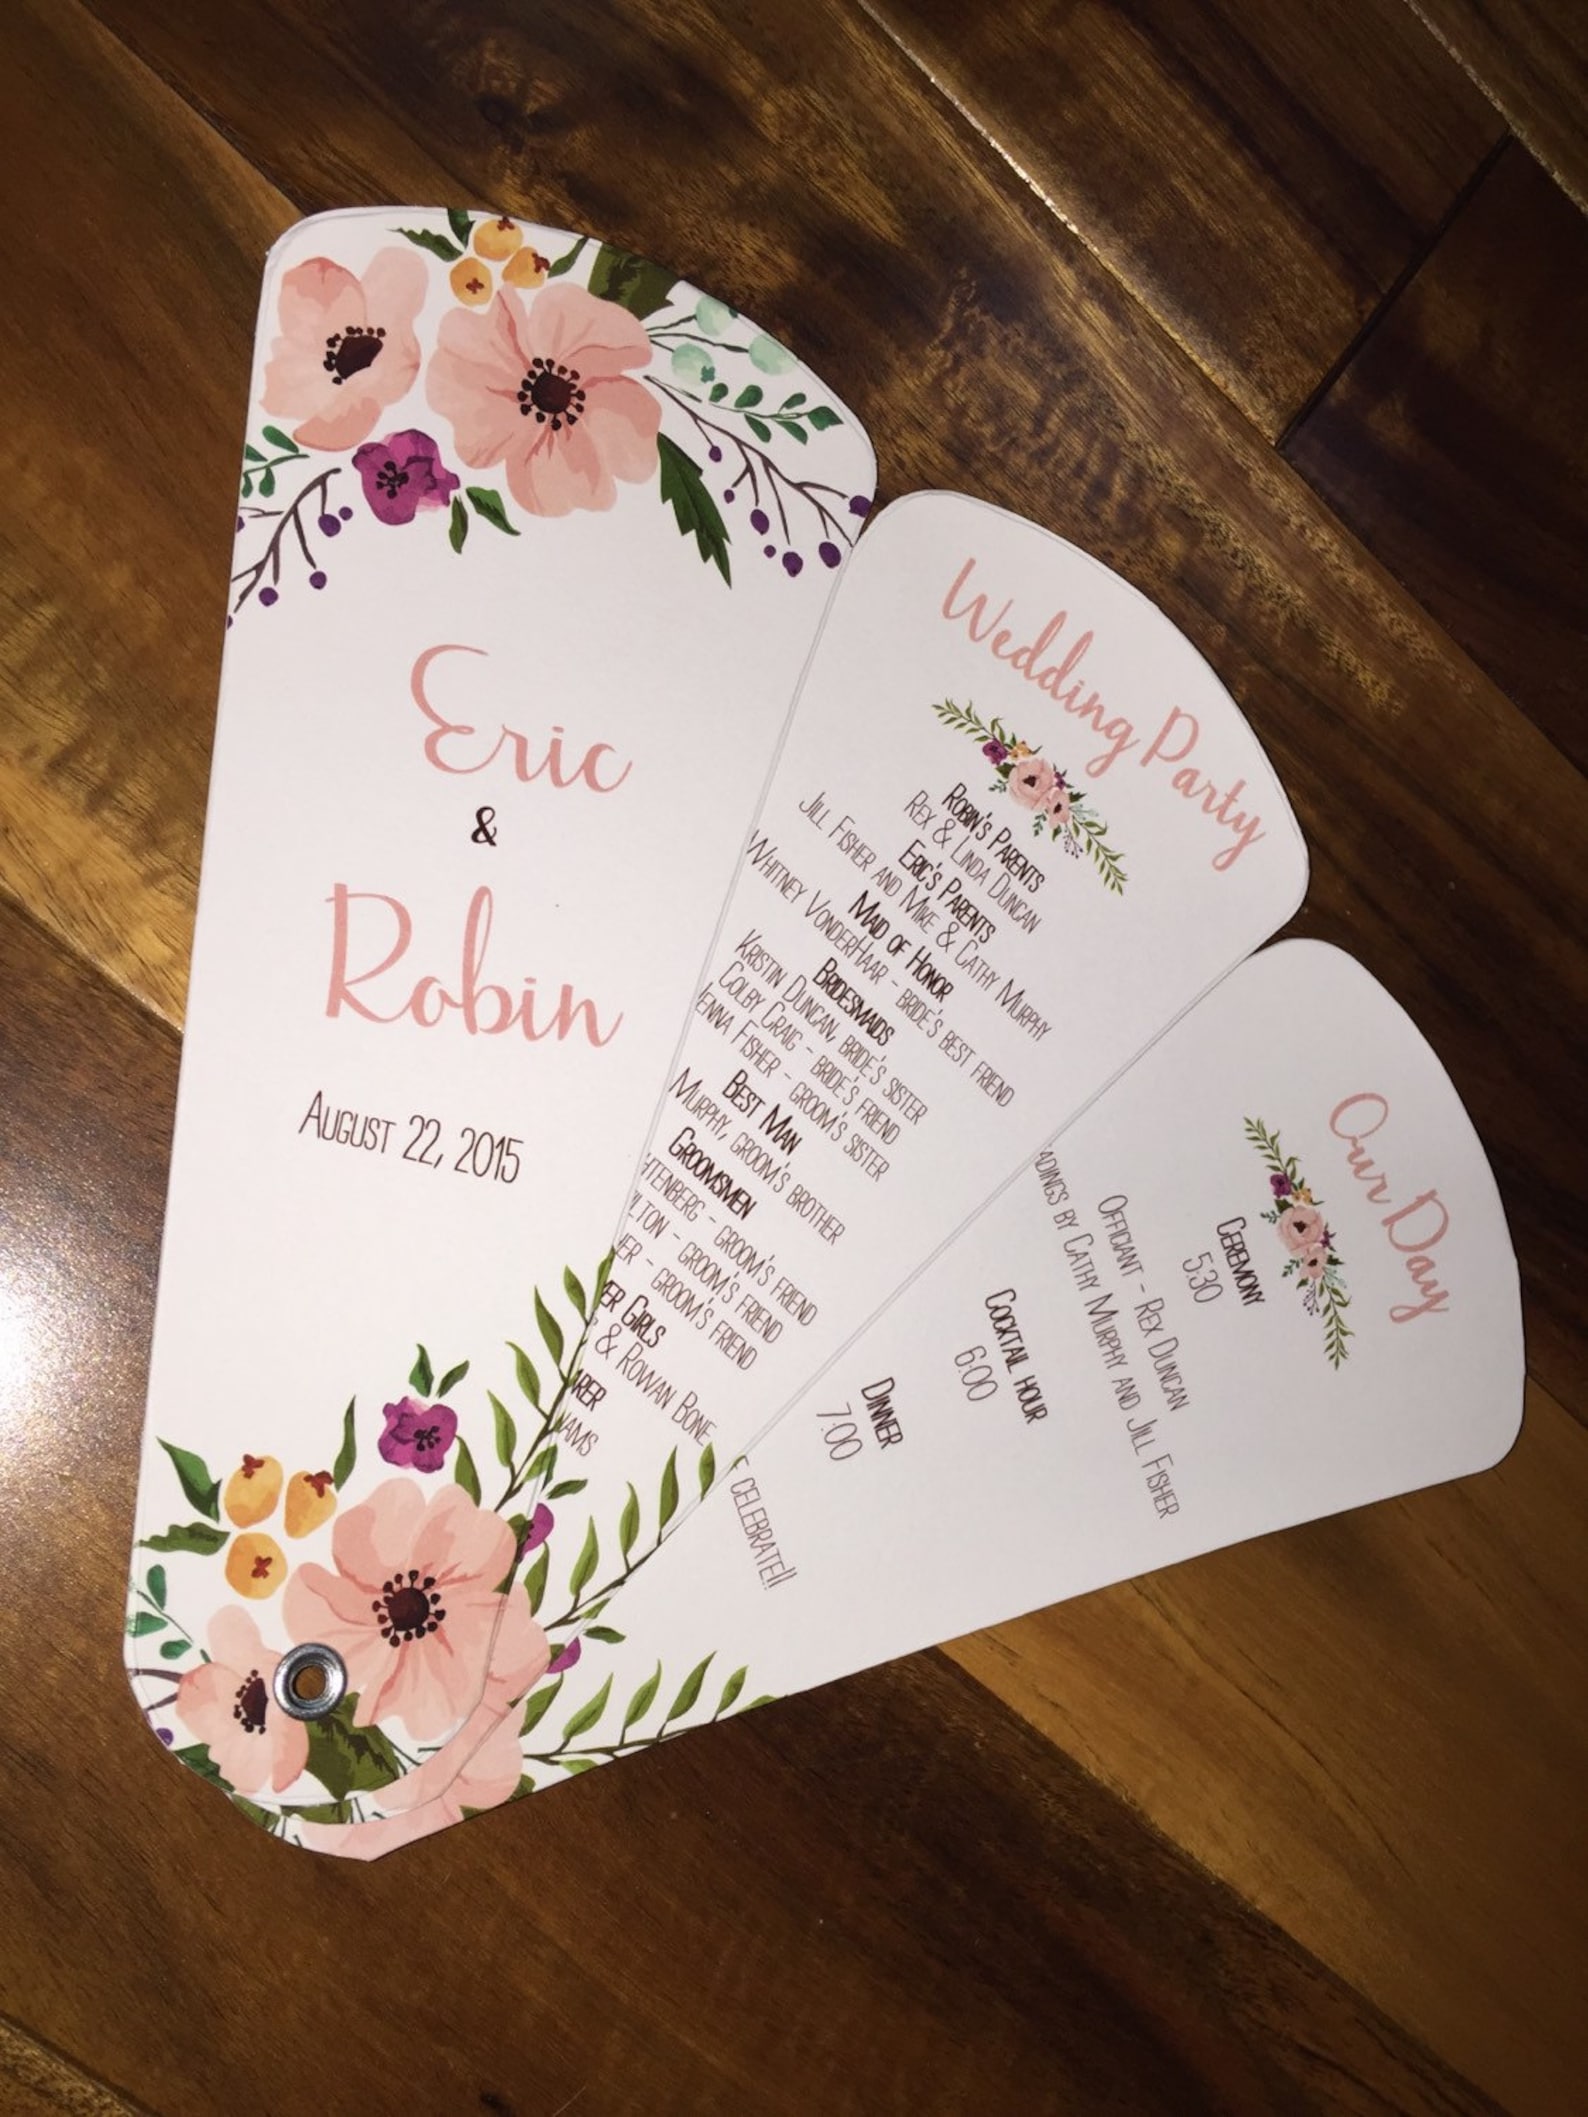 Eric
&
Robin
August 22, 2015
Wedding Party
Robin's Parents
Rex & Linda Duncan
Eric's Parents
Jill Fisher and Mike & Cathy Murphy
Maid of Honor
Whitney VonderHaar - bride's best friend
Bridesmaids
Kristin Duncan, bride's sister
Colby Craig - bride's friend
enna Fisher - groom's sister
Best Man
Murphy, groom's brother
Groomsmen
htenberg - groom's friend
lton - groom's friend
er - groom's friend
er Girls
& Rowan Bone
arer
iams
Our Day
Ceremony
5:30
Officiant - Rex Duncan
adings by Cathy Murphy and Jill Fisher
Cocktail hour
6:00
Dinner
7:00
celebrate!!